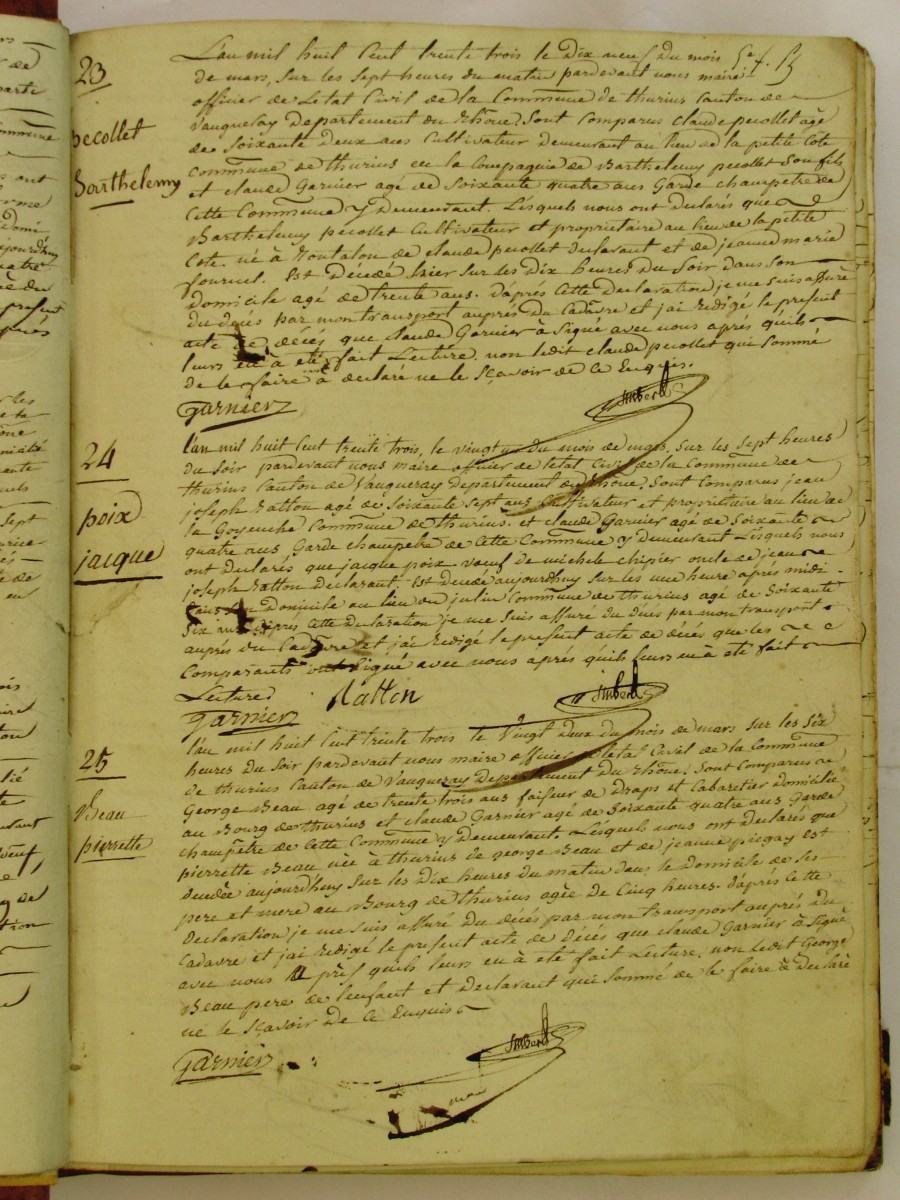 23
pecollet
Barthelemy
L'an mil huit Cent trente trois le Dix neuf Du mois
de mars, Sur les Sept heures du matin pardevant nous maire
officier de Letat Civil de la Commune de thurins Canton de
Vaugneray Departement du Rhône, Sont Comparus claude pecollet agé
de Soixante Deux ans Cultivateur Demeurant au lieu de la petite Cote
Commune de thurins en la Compagnie de Barthelemy pecollet Son fils
et claude Garnier agé de Soixante quatre ans Garde champetre de
Cette Commune y Demeurant. Lesquels nous ont Declarés que
Barthelemy pecollet Cultivateur et proprietaire au lieu de la petite
Cote né à de claude pecollet Declarant et de jeanne marie
fournel. Est Décedé hier Sur les Dix heures Du Soir Dans Son
Domicile agé de trente ans. D'après Cette Declaration je me suis assuré
Du décès par mon transport auprès Du Cadavre et j'ai redigé le present
acte De décès que claude Garnier à Signé avec nous après qu'ils
leurs en à eté fait Lecture, non ledit claude pecollet qui Sommé
de le faire à declaré ne le Sçavoir de Ce Enquis.
Garnier
Imbert
24
poix
jacque
L'an mil huit Cent trente trois, le vingt un Du mois de mars, Sur les Sept heures
du Soir pardevant nous maire officier de letat Civil de la Commune de
thurins Canton de Vaugneray Departement du Rhône, Sont Comparus jean
joseph Ratton agé de Soixante Sept ans Cultivateur et proprietaire au lieu de
la Goyenche Commune de thurins. et claude Garnier agé de Soixante
quatre ans Garde champetre de Cette Commune y Demeurant Lesquels nous
ont Declarés que jacque poix veuf de michele chipier oncle de jean
joseph Ratton Declarant Est Decedé aujourdhuy Sur les une heure après midi
Dans Son Domicile au lieu du julin Commune de thurins agé de Soixante
Six ans, D'après Cette Declaration je me Suis assuré du décès par mon transport
auprès du Cadavre et j'ai redigé le present acte de décès que les
Comparants ont Signé avec nous après qu'ils leurs en à eté fait
Lecture
Ratton
Garnier
Imbert
25
Beau
pierrette
L'an mil huit Cent trente trois le Vingt Deux du mois de mars Sur les Six
heures du Soir pardevant nous maire officier de letat Civil de la Commune
de thurins Canton de Vaugneray Departement Du Rhône, Sont Comparus
George Beau agé de trente trois ans faiseur de Draps et Cabaretier Domicilié
au Bourg de thurins et claude Garnier agé de Soixante quatre ans Garde
champêtre de Cette Commune y Demeurant. Lesquels nous ont Declarés que
pierrette Beau née à thurins de george Beau et de jeanne pregay est
Decedée aujourdhuy Sur les Dix heures du matin Dans le Domicile de Ses
pere et mere au Bourg de thurins agée De Cinq heures. D'après Cette
Declaration je me Suis assuré Du decès par mon transport auprès Du
Cadavre et j'ai redigé le present acte de Décès que claude Garnier à Signé
avec nous après quils leurs en à eté fait Lecture, non Ledit George
Beau pere de lenfant et Declarant qui Sommé de le faire à Declaré
ne le Sçavoir De Ce Enquis
Garnier
Imbert